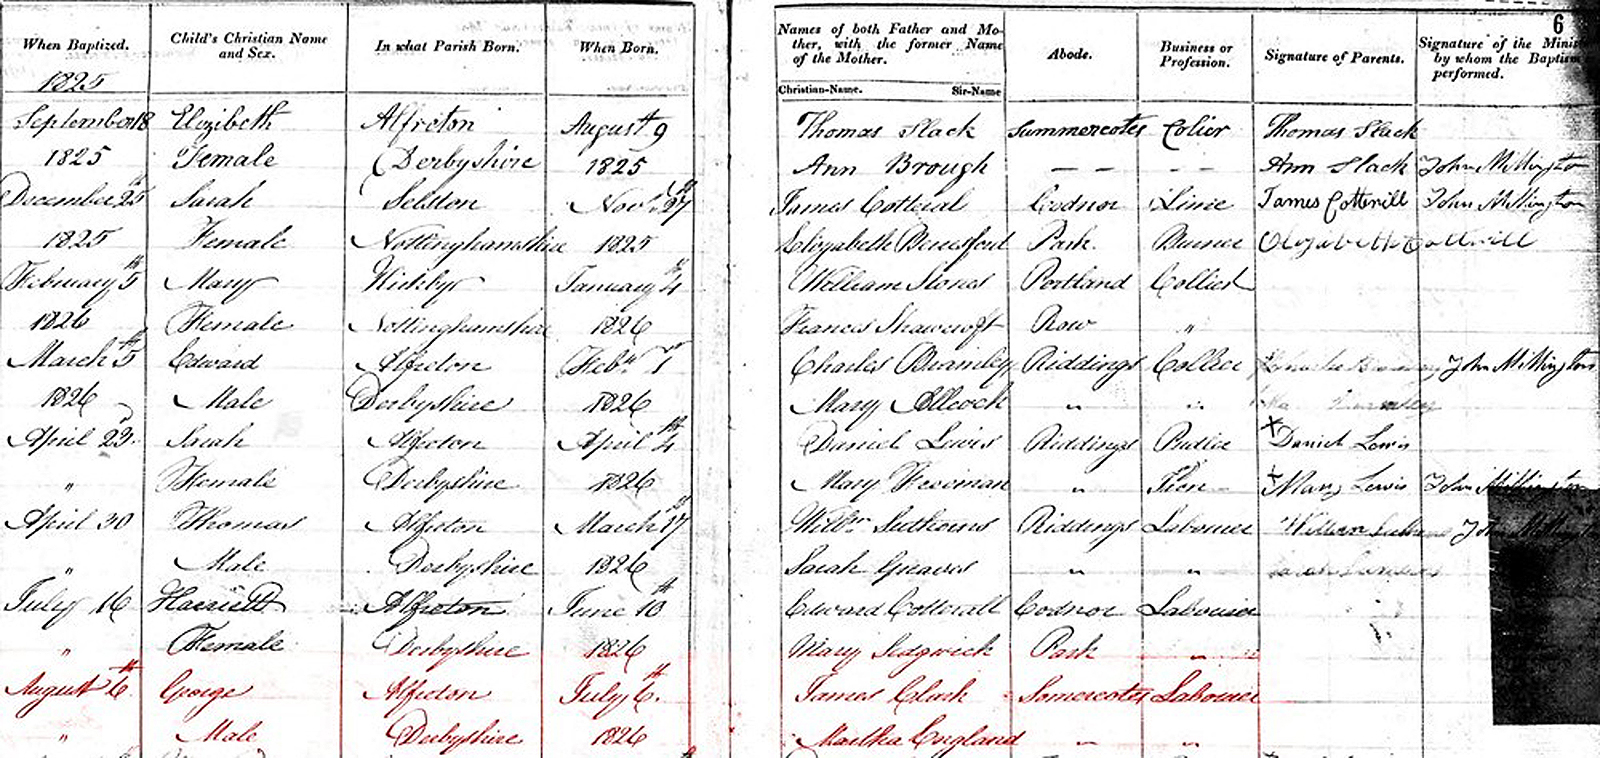 6
When Baptized. Child's Christian Name and Sex. In what Parish Born. When Born. Names of both Father and Mother, with the former Name of the Mother. Abode. Business or Profession. Signature of Parents. Signature of the Minis by whom the Baptism performed.
Christian-Name. Sir-Name
1825
September 18 Elizibeth Alfreton August 9 Thomas Slack Summercotes Colier Thomas Slack
1825 Female Derbyshire 1825 Ann Brough — — - - Ann Slack John Millington
December 25th Sarah Selston Novr. 27th James Cotteral Codnor Lime James Cotterill John Millington
1825 Female Nottinghamshire 1825 Elizabeth Beresford Park. Burner Elizabeth Cotterill
February 5th Mary Kirkby January 4th William Stones Portland Collier
1826 Female Nottinghamshire 1826 Frances Shawcroft Row "
March 5th Edward Alfreton Febr. 1st Charles Bramley Riddings Collier John Millington
1826 Male Derbyshire 1826 Mary Allcock " "
April 23. Sarah Alfreton April 4th Daniel Lewis Riddings Pudler X Daniel Lewis
" Female Derbyshire 1826 Mary " X Mary Lewis John Millington
April 30 Thomas Alfreton March 17th Willm. Riddings Labourer William John Millington
" Male Derbyshire 1826 Sarah Greaves " "
July 16 Harriett Alfreton June 10th Edward Cotterall Codnor Labourer
" Female Derbyshire 1826 Mary Sedgwick Park " "
August 6th George Alfreton July 6th James Clark Somercotes Labourer
" Male Derbyshire 1826 Martha England " "